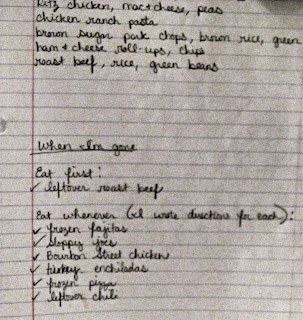 Ritz chicken, mac + cheese, peas
chicken ranch pasta
brown sugar pork chops, brown rice, green
ham + cheese roll-ups, chips
roast beef, rice, green beans
When I'm gone
Eat first:
✓ leftover roast beef
Eat whenever (I wrote directions for each):
✓ frozen fajitas
✓ Sloppy Joes
✓ Bourbon Street chicken
✓ turkey enchiladas
✓ frozen pizza
✓ leftover chili